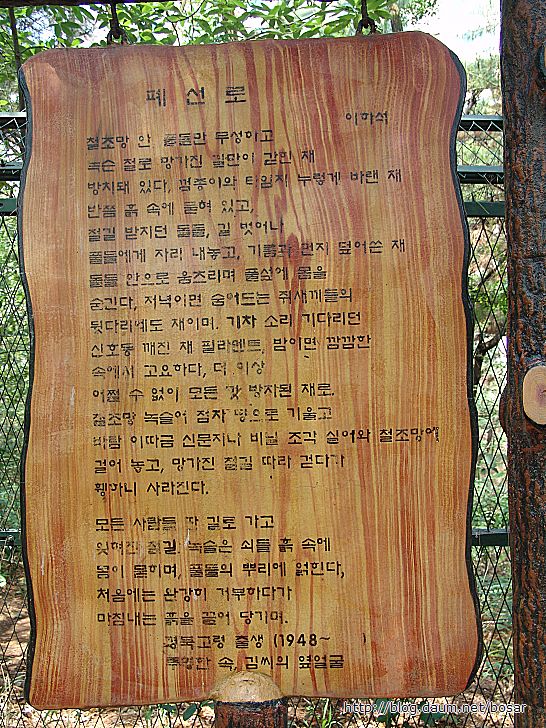 폐선로
이하석
철조망 안 풀들만 무성하고
녹슨 철로 망가진 길만이 갇힌 채
방치돼 있다. 껌종이와 타임지 누렇게 바랜 채
반쯤 흙 속에 묻혀 있고,
철길 받치던 돌들, 길 벗어나
풀들에게 자리 내놓고, 기름과 먼지 덮어쓴 채
돌들 안으로 움츠리며 풀섶에 몸을
숨긴다, 저녁이면 숨어드는 쥐새끼들의
뒷다리에도 채이며. 기차 소리 기다리던
신호등 깨진 채 필라멘트, 밤이면 깜깜한
속에서 고요하다, 더 이상
어쩔 수 없이 모든 것 방치된 채로.
철조망 녹슬어 점차 땅으로 기울고
바람 이따금 신문지나 비닐 조각 실어와 철조망에
걸어 놓고, 망가진 철길 따라 걷다가
휑하니 사라진다.
모든 사람들 딴 길로 가고
잊혀진 철길 녹슬은 쇠들 흙 속에
몸이 묻히며, 풀들의 뿌리에 얽힌다,
처음에는 완강히 거부하다가
마침내는 흙을 끌어 당기며.
경북고령 출생 (1948~ )
투명한 속, 김씨의 옆얼굴
http://blog.daum.net/bosar